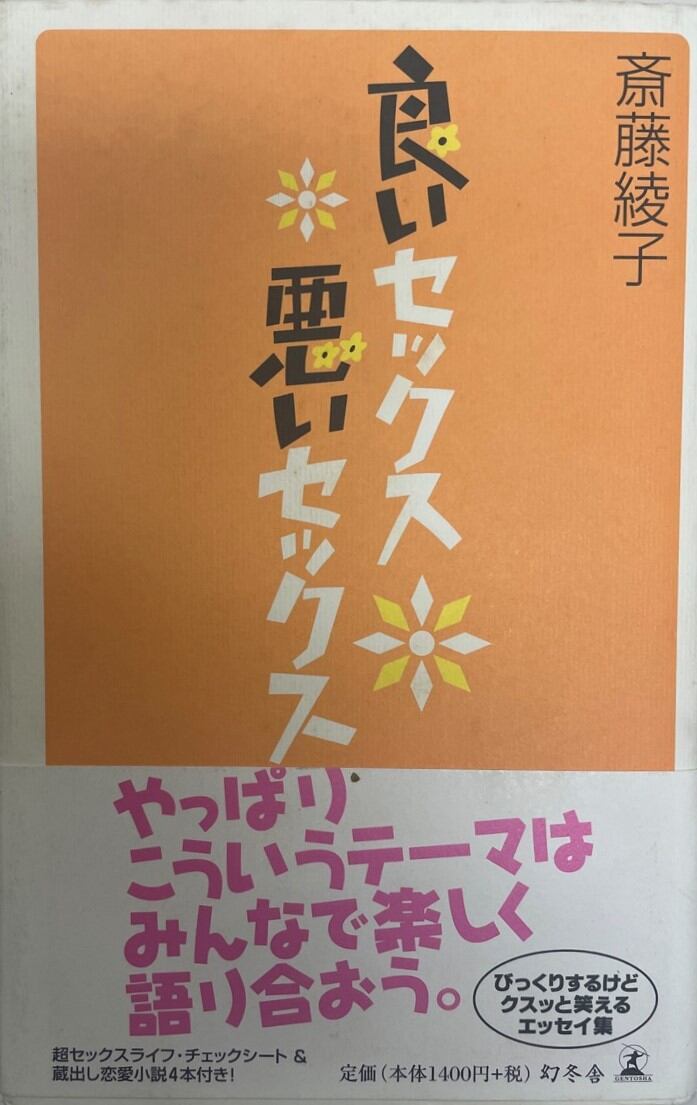 斎藤綾子
良いセックス
悪いセックス
やっぱり
こういうテーマは
みんなで楽しく
語り合おう。
びっくりするけど
クスッと笑える
エッセイ集
超セックスライフ・チェックシート &
蔵出し恋愛小説4本付き!
定価(本体1400円+税) 幻冬舎
GENTOSHA